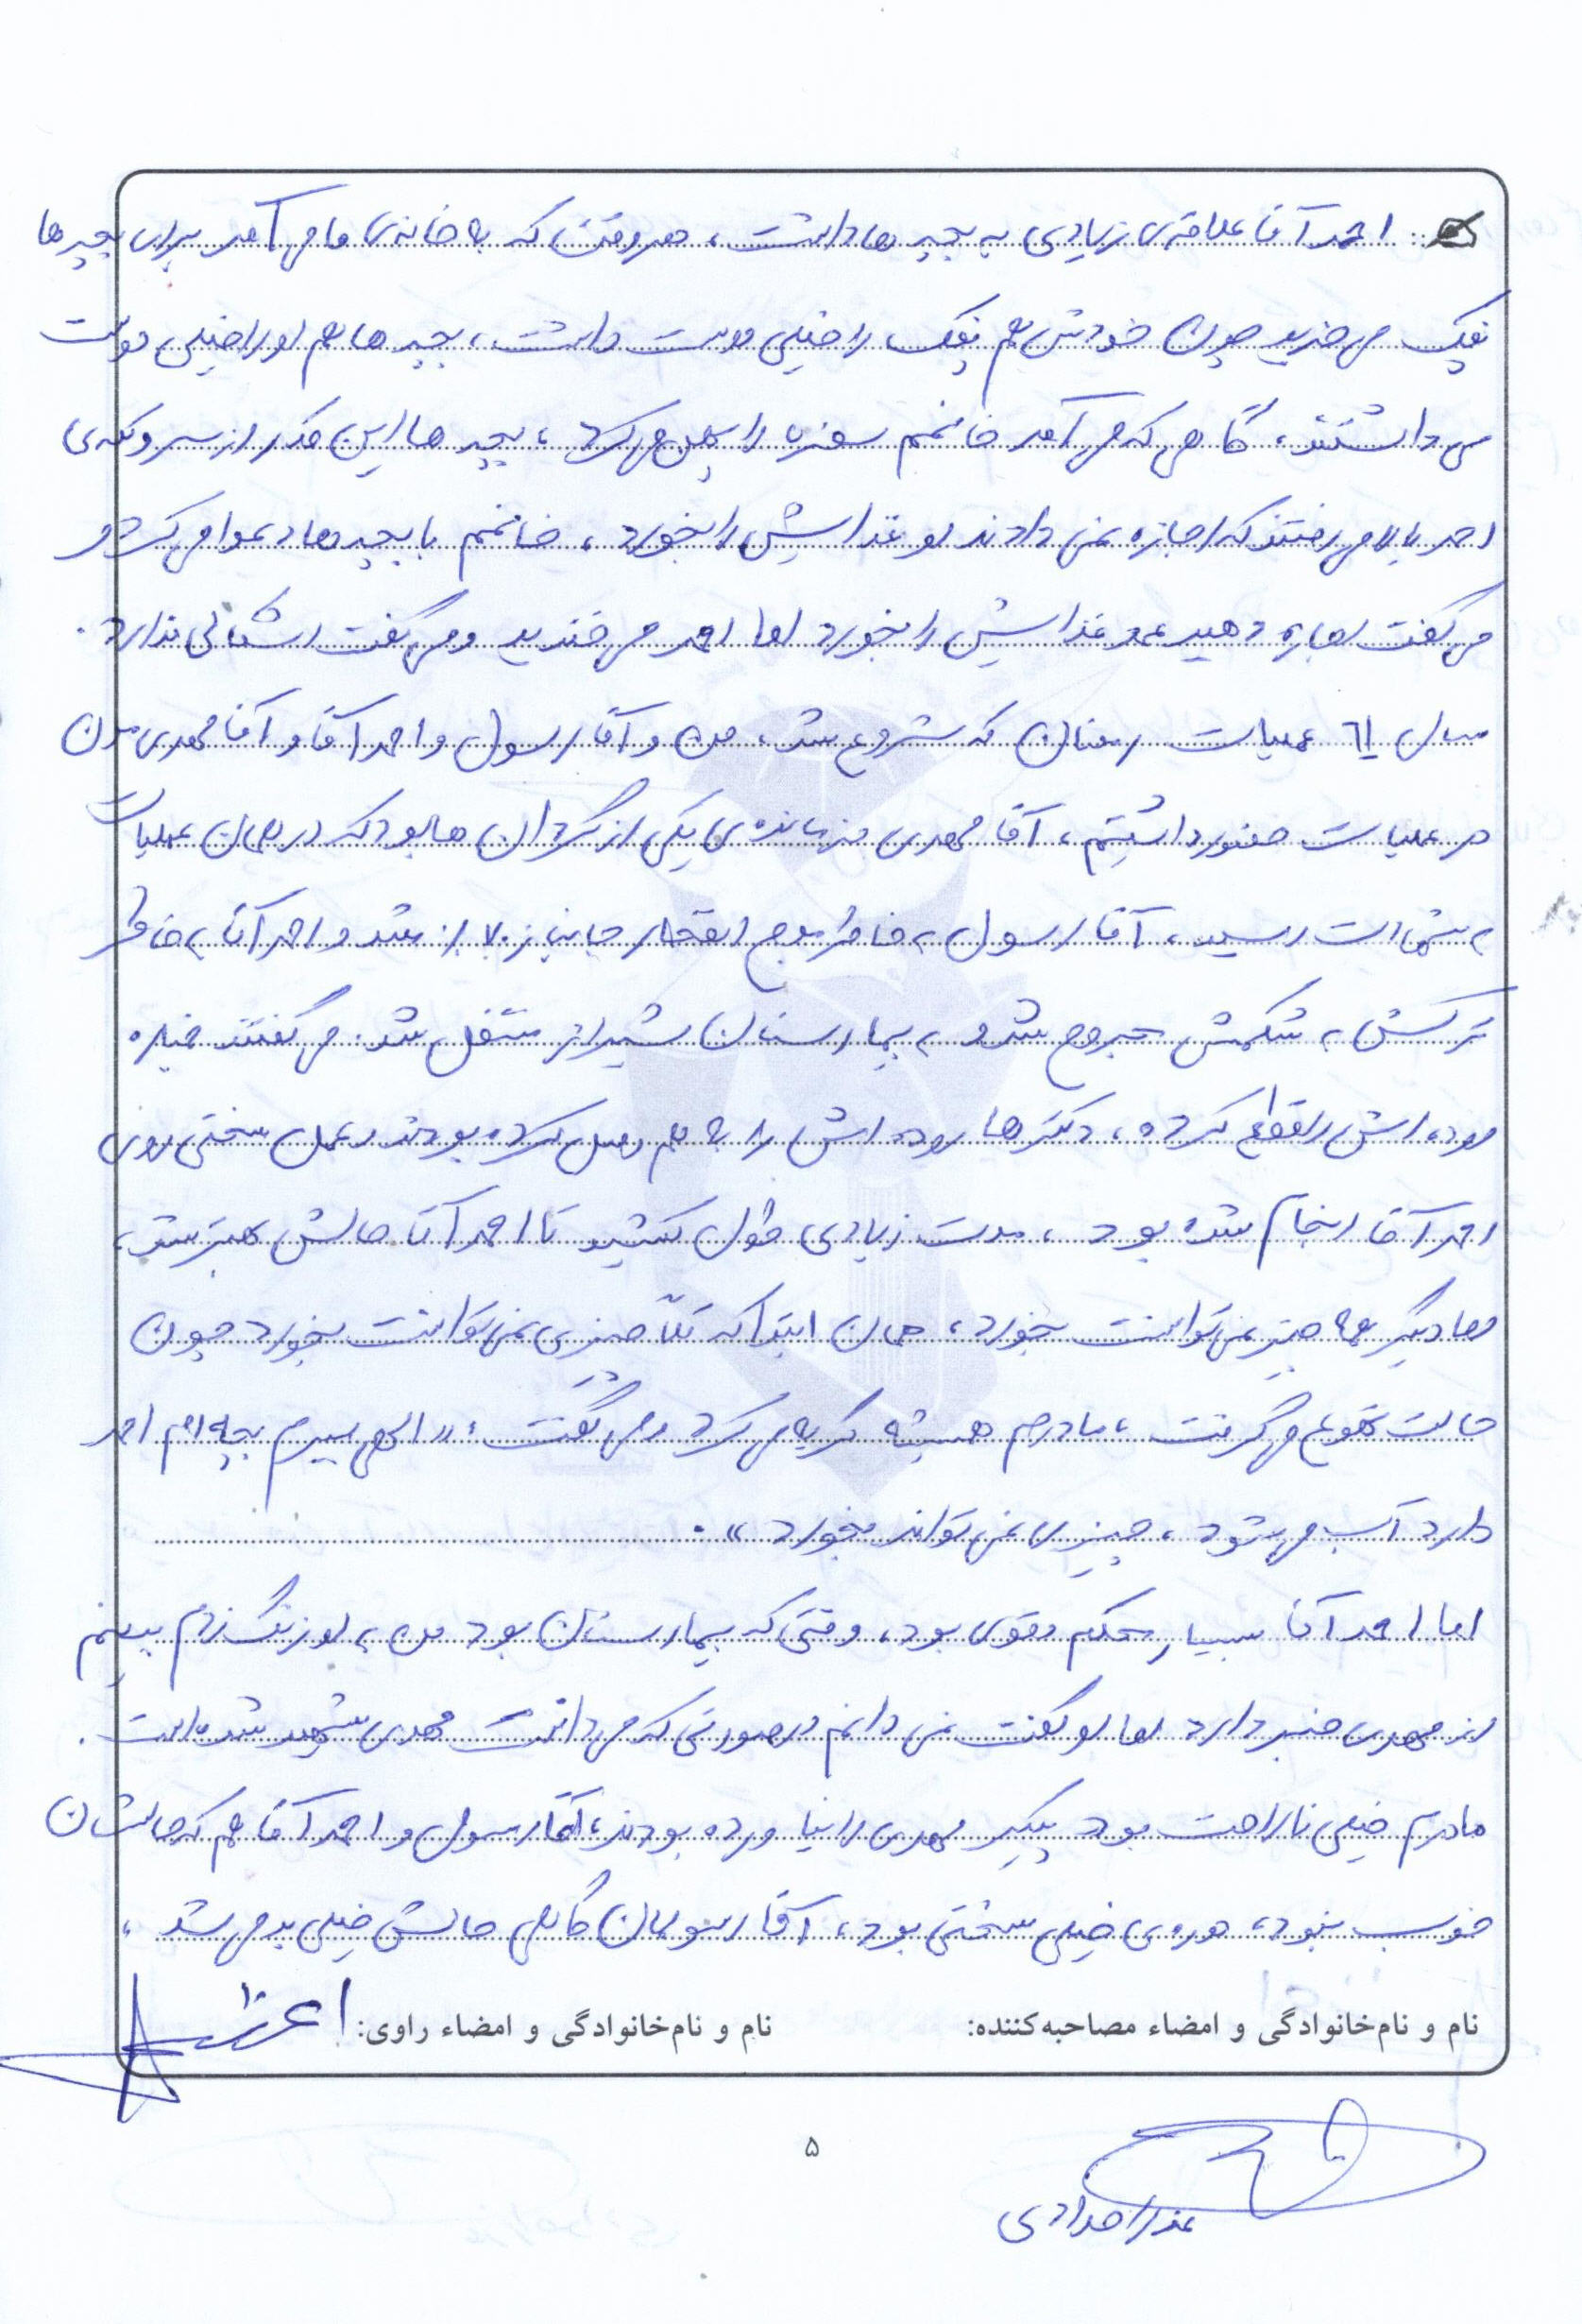 احمد آقا علاقه‌ی زیادی به بچه ها داشت، هر وقت که به خانه‌ی ما می آمد برای بچه ها
پفک می خرید چون خودش هم پفک را خیلی دوست داشت، بچه ها هم او را خیلی دوست
می داشتند، گاهی که می آمد خانمم سفره را پهن می کرد، بچه ها این قدر از سر و کله‌ی
احمد بالا می رفتند که اجازه نمی دادند او غذایش را بخورد، خانمم با بچه ها دعوا می کرد و
می گفت اجازه دهید عمو غذایش را بخورد اما احمد می خندید و می گفت اشکالی ندارد.
سال ٦١ عملیات رمضان که شروع شد، من و آقا رسول و احمد آقا و آقا مهدی مان
در عملیات حضور داشتیم، آقا مهدی فرمانده‌ی یکی از گردان ها بود که در همان عملیات
به شهادت رسید، آقا رسول به خاطر موج انفجار جانباز ٧٠٪ شد و احمد آقا به خاطر
ترکش به شکمش مجروح شد و به بیمارستان شیراز منتقل شد. می گفتند خمپاره
روده اش را قطع کرده، دکترها روده اش را به هم وصل کرده بودند و عمل سختی روی
احمد آقا انجام شده بود، مدت زیادی طول کشید تا احمد آقا حالش بهتر شد،
و دیگر همه چیز نمی توانست بخورد، همان ابتدا که کلاً چیزی نمی توانست بخورد چون
حالت تهوع می گرفت، مادرم همیشه گریه می کرد و می گفت: «الهی بمیرم بچه ام احمد
دارد آب می شود، چیزی نمی تواند بخورد».
اما احمد آقا بسیار محکم و قوی بود، وقتی که بیمارستان بود من به او زنگ زدم ببینم
از مهدی خبر دارد اما او گفت نمی دانم در صورتی که می دانست مهدی شهید شده است.
مادرم خیلی ناراحت بود پیکر مهدی را نیاورده بودند، آقا رسول و احمد آقا هم که حالشان
خوب نبود، دوره‌ی خیلی سختی بود، آقا رسولمان گاهی حالش خیلی بد می شد،
نام و نام‌خانوادگی و امضاء مصاحبه‌کننده: نام و نام‌خانوادگی و امضاء راوی:
۵
عذرا حدادی